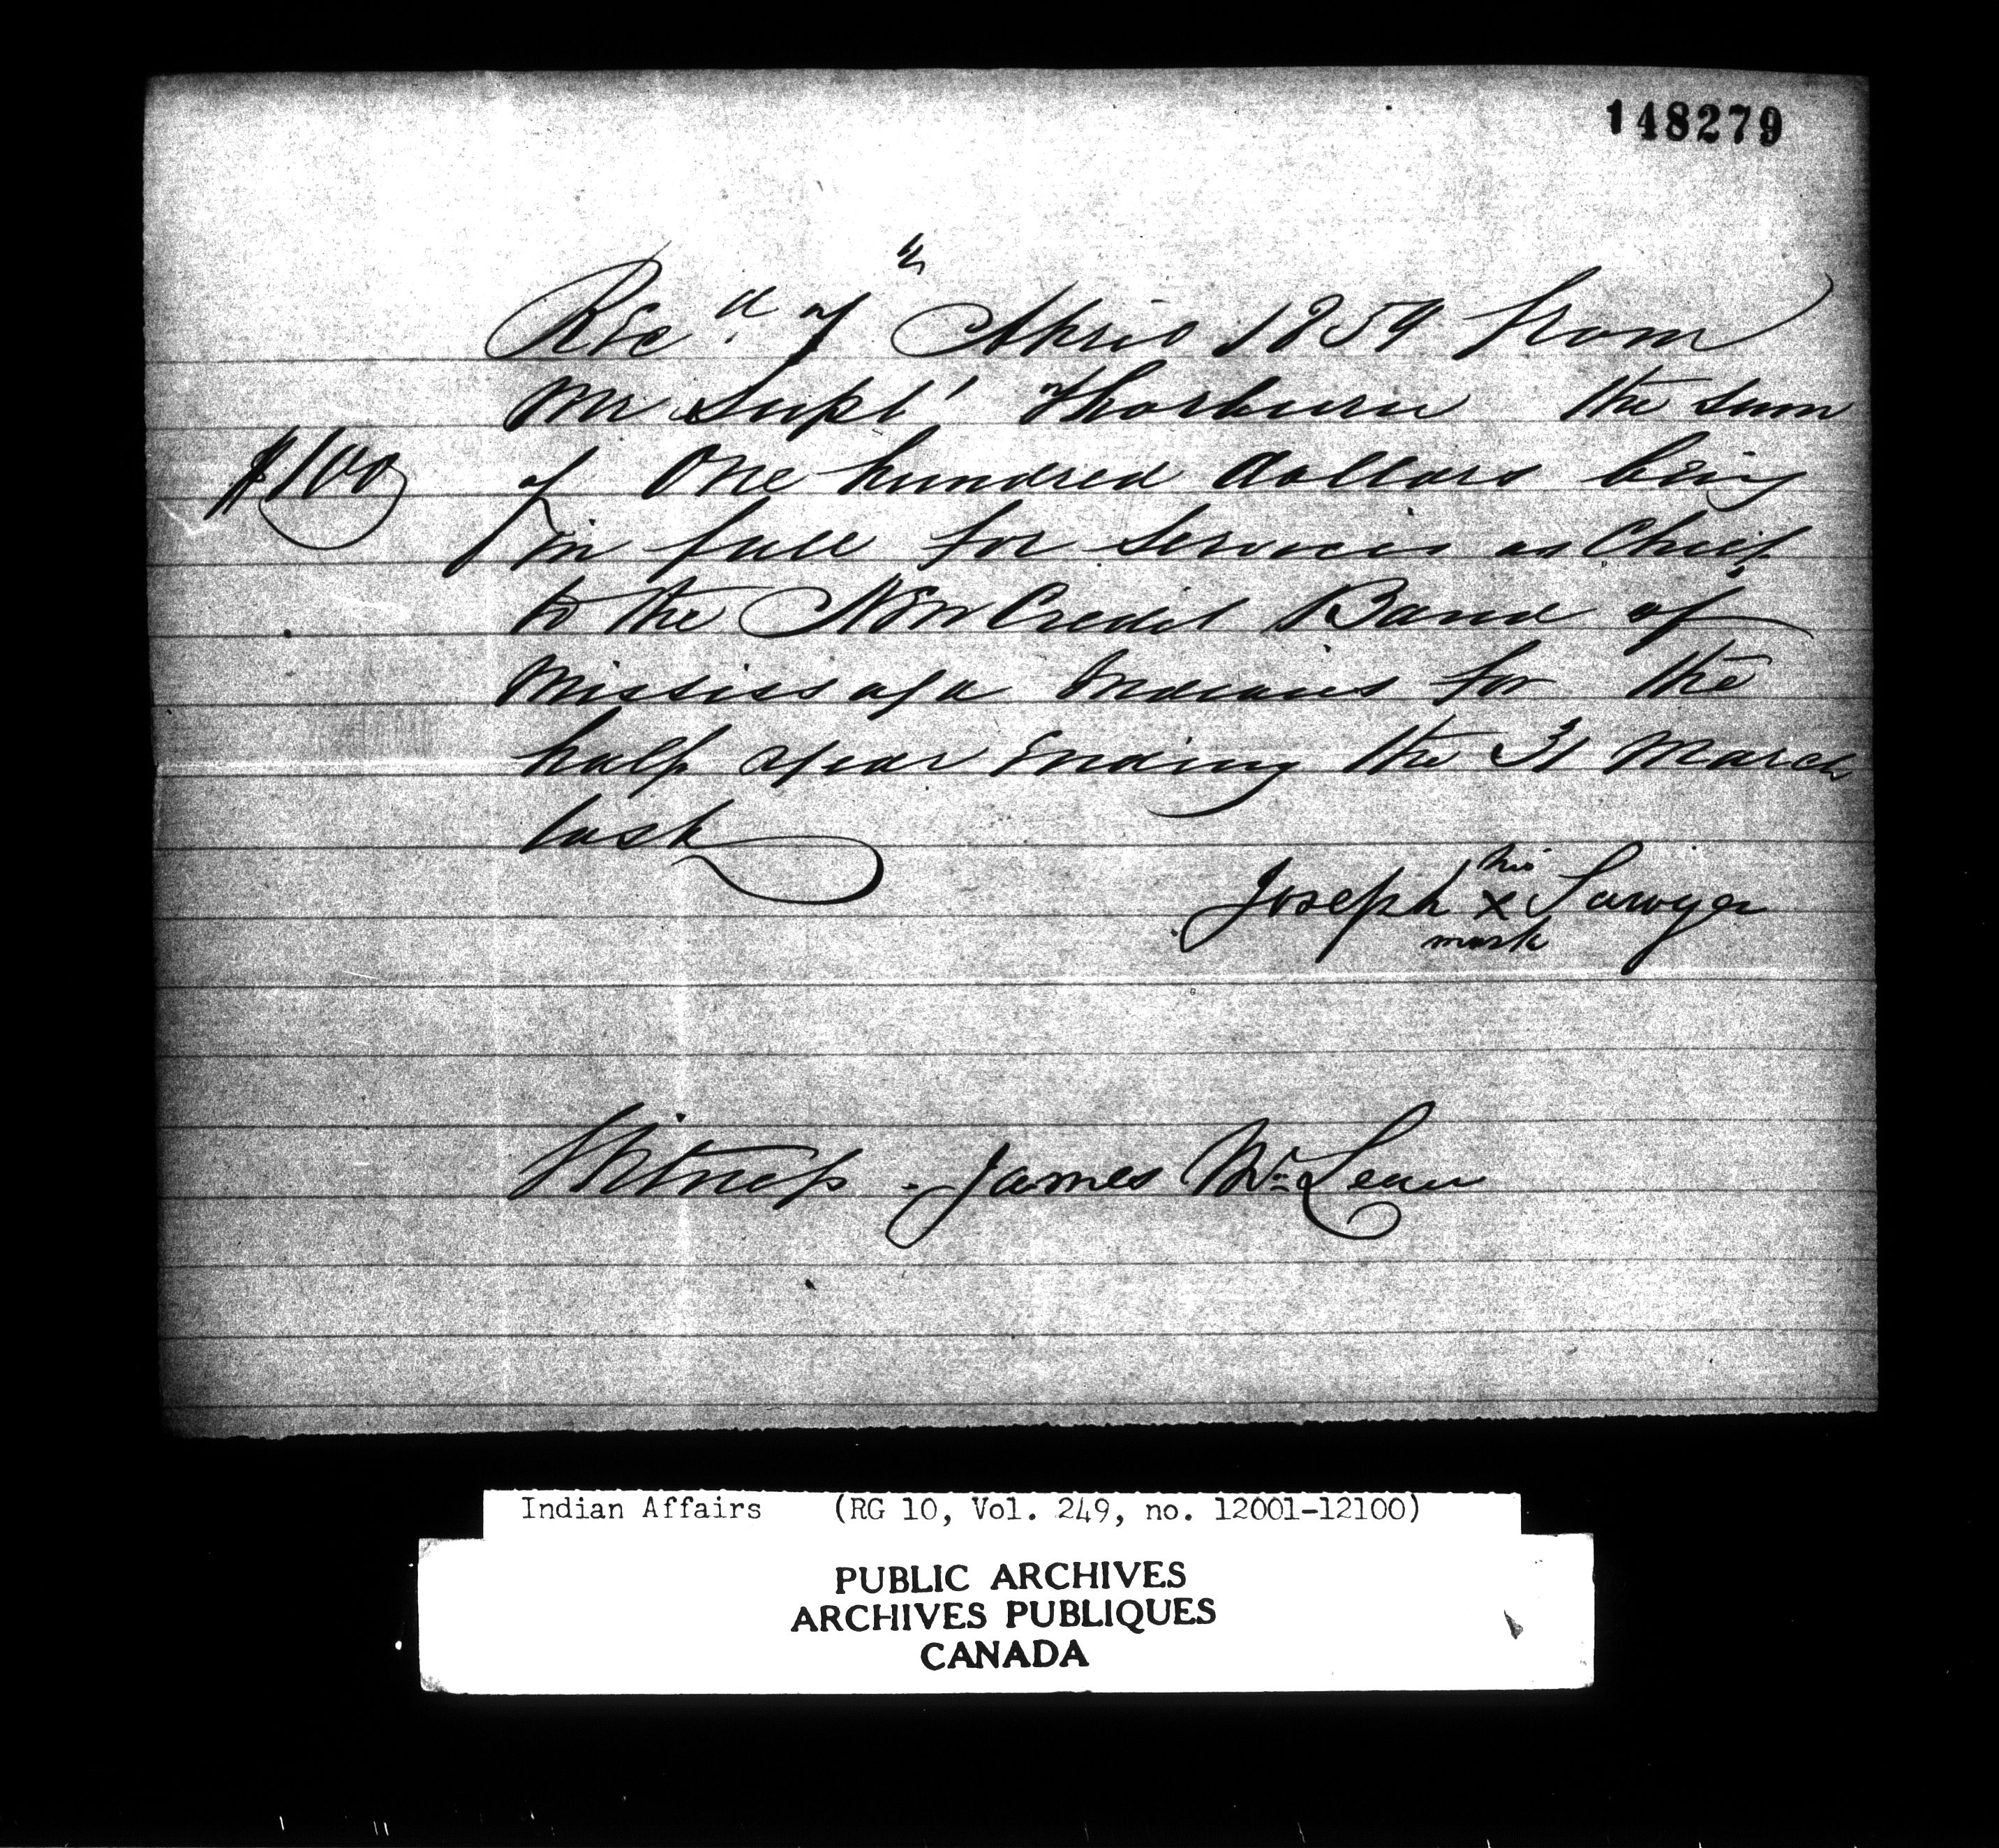 148279
Rec'd 7th April 1859 from
Mr Supt Thorburn the sum
$100 of One hundred dollars being
in full for services as Chief
to the New Credit Band of
Mississaga Indians for the
half year Ending the 31 March
last
Joseph his x mark Sawyer
Witness - James McLean
Indian Affairs (RG 10, Vol. 249, no. 12001-12100)
PUBLIC ARCHIVES
ARCHIVES PUBLIQUES
CANADA